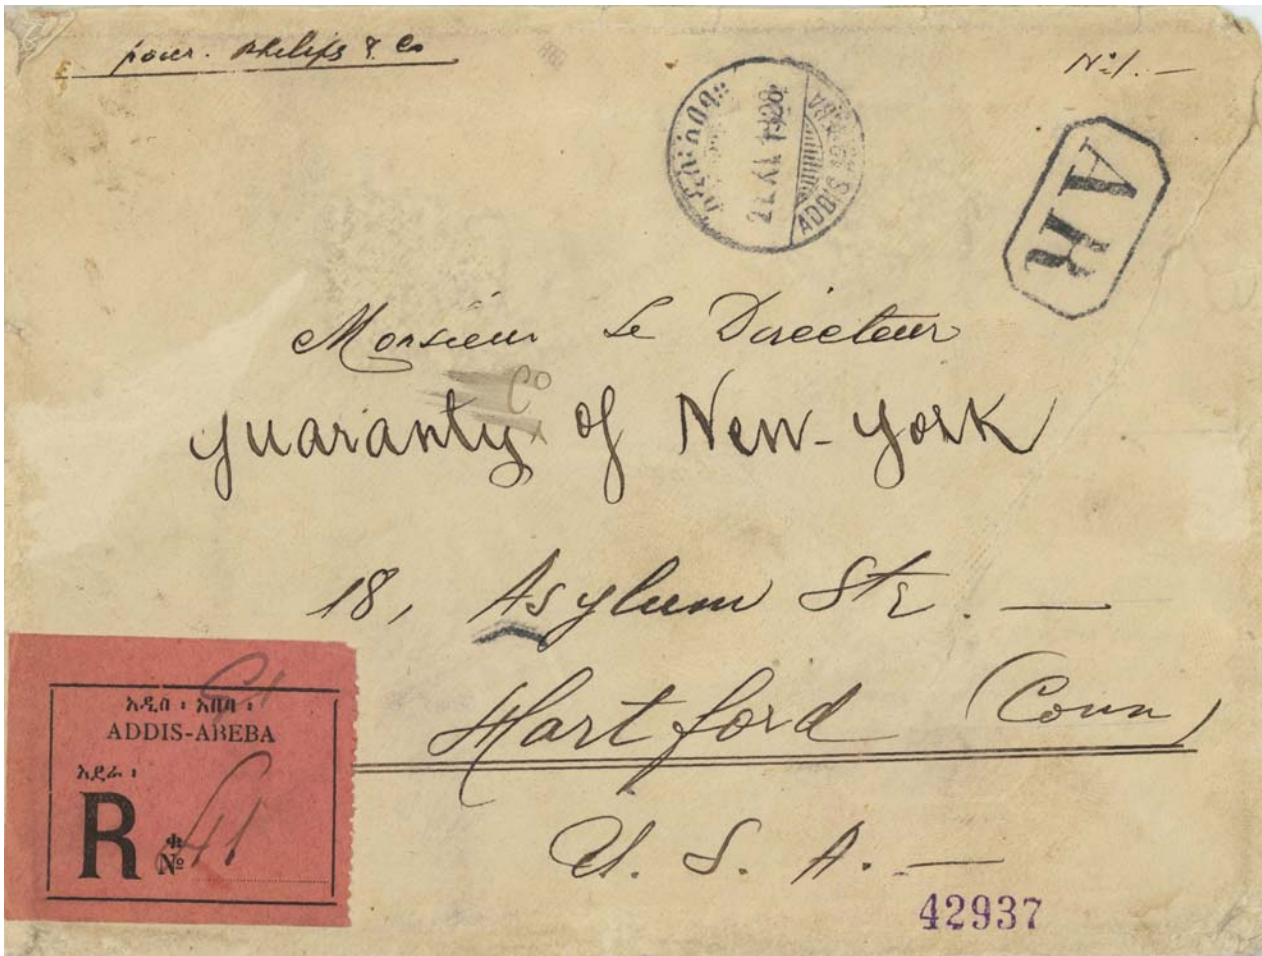 pour. Philips & Co
No 1. —
ADDIS ABEBA
AR
Monsieur Le Directeur
Co
Guaranty of New-York
18, Asylum Str. —
Hartford (Conn)
U. S. A. —
አዲስ ፡ አበባ ፡
ADDIS-ABEBA
አደራ ፡
R
ቍ
No 41
42937